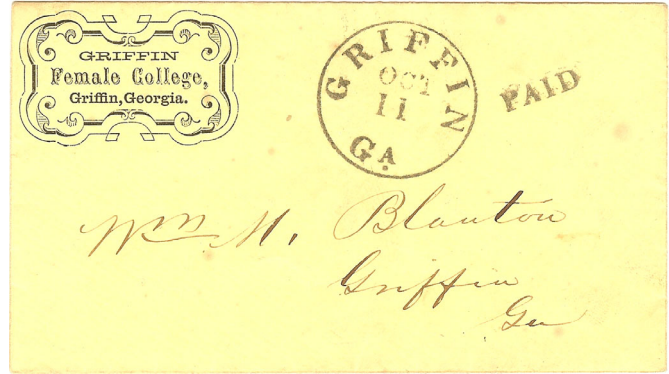 GRIFFIN
Female College,
Griffin, Georgia.
GRIFFIN
OCT
11
GA.
PAID
Wm M. Blanton
Griffin
Ga